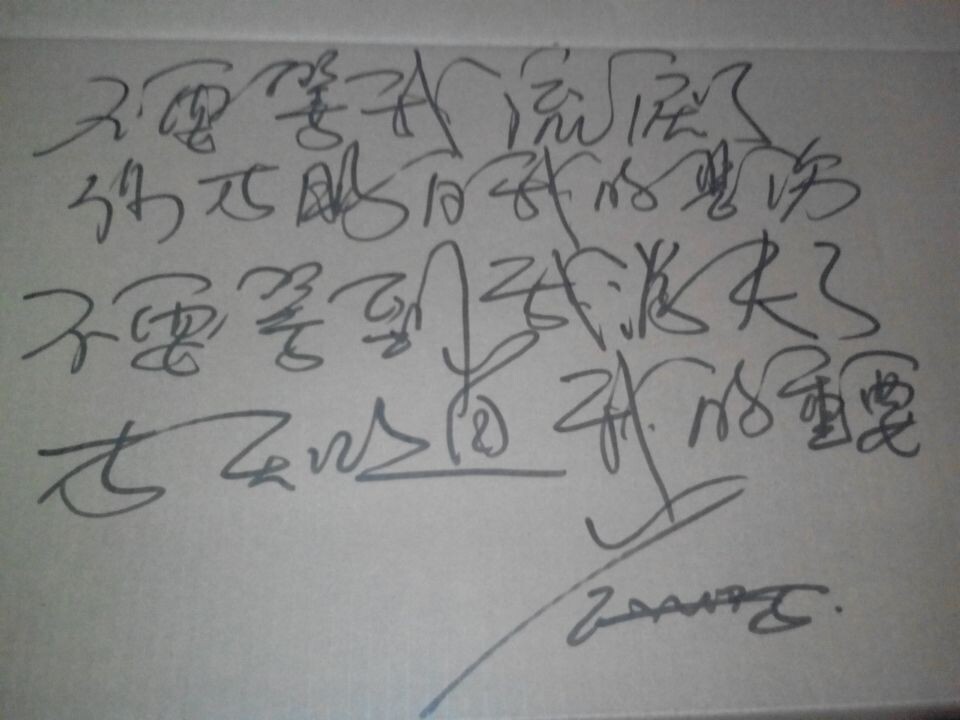 不要等我流泪了
你才明白我的悲伤
不要等到我消失了
才去回我的重要